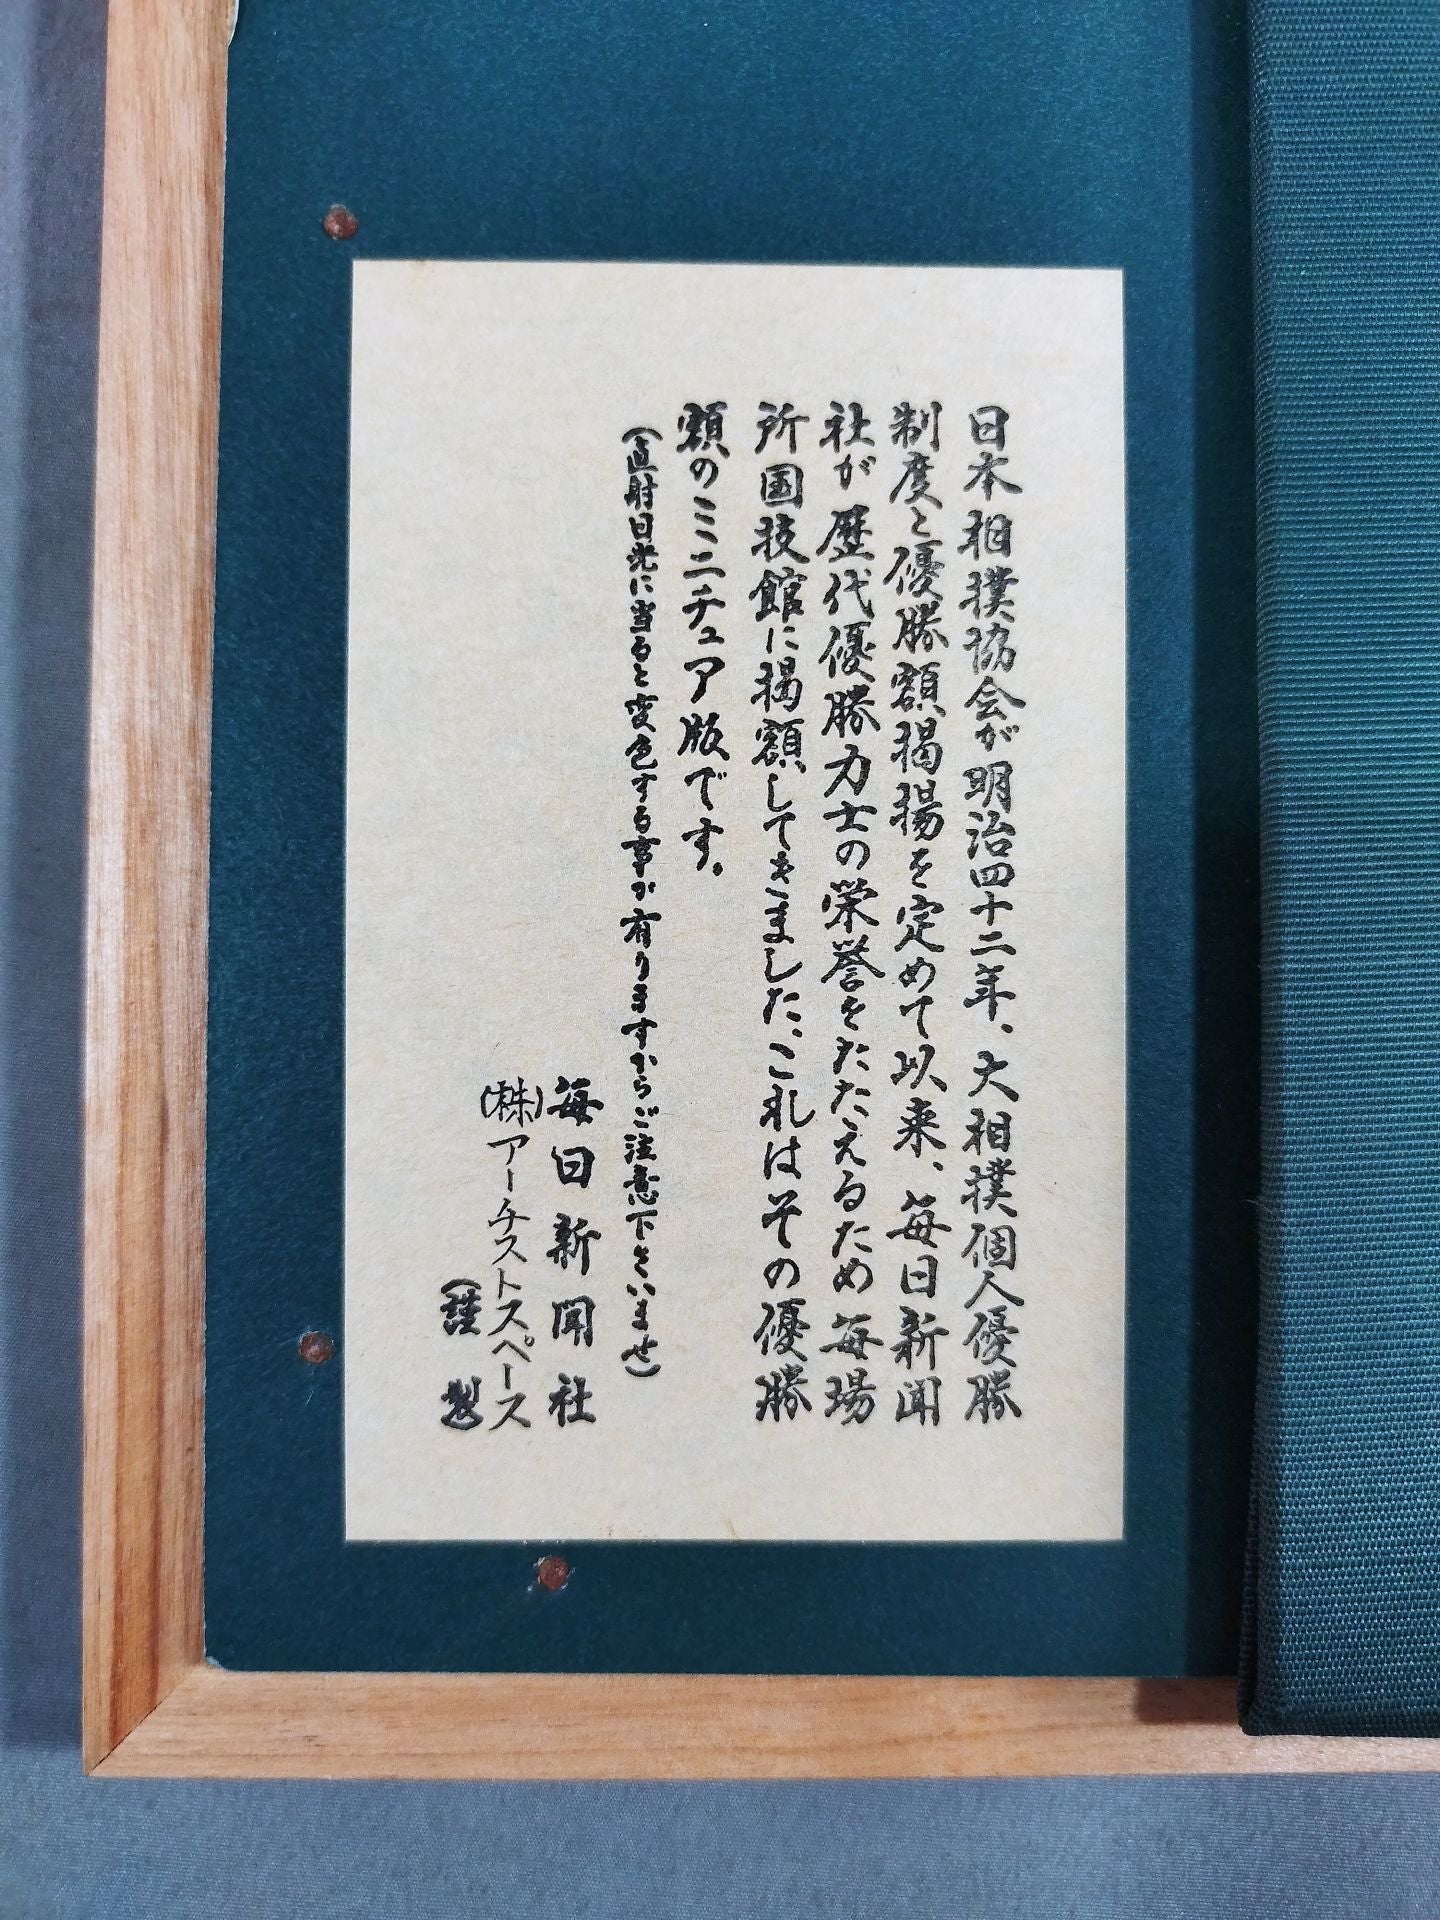 日本相撲協会が明治四十二年、大相撲個人優勝
制度と優勝額掲揚を定めて以来、毎日新聞
社が歴代優勝力士の栄誉をたたえるため毎場
所国技館に掲額してきました、これはその優勝
額のミニチュア版です。
(直射日光に当ると変色する事が有りますからご注意下さいませ)
毎日新聞社
(株)アーチストスペース
(謹製)